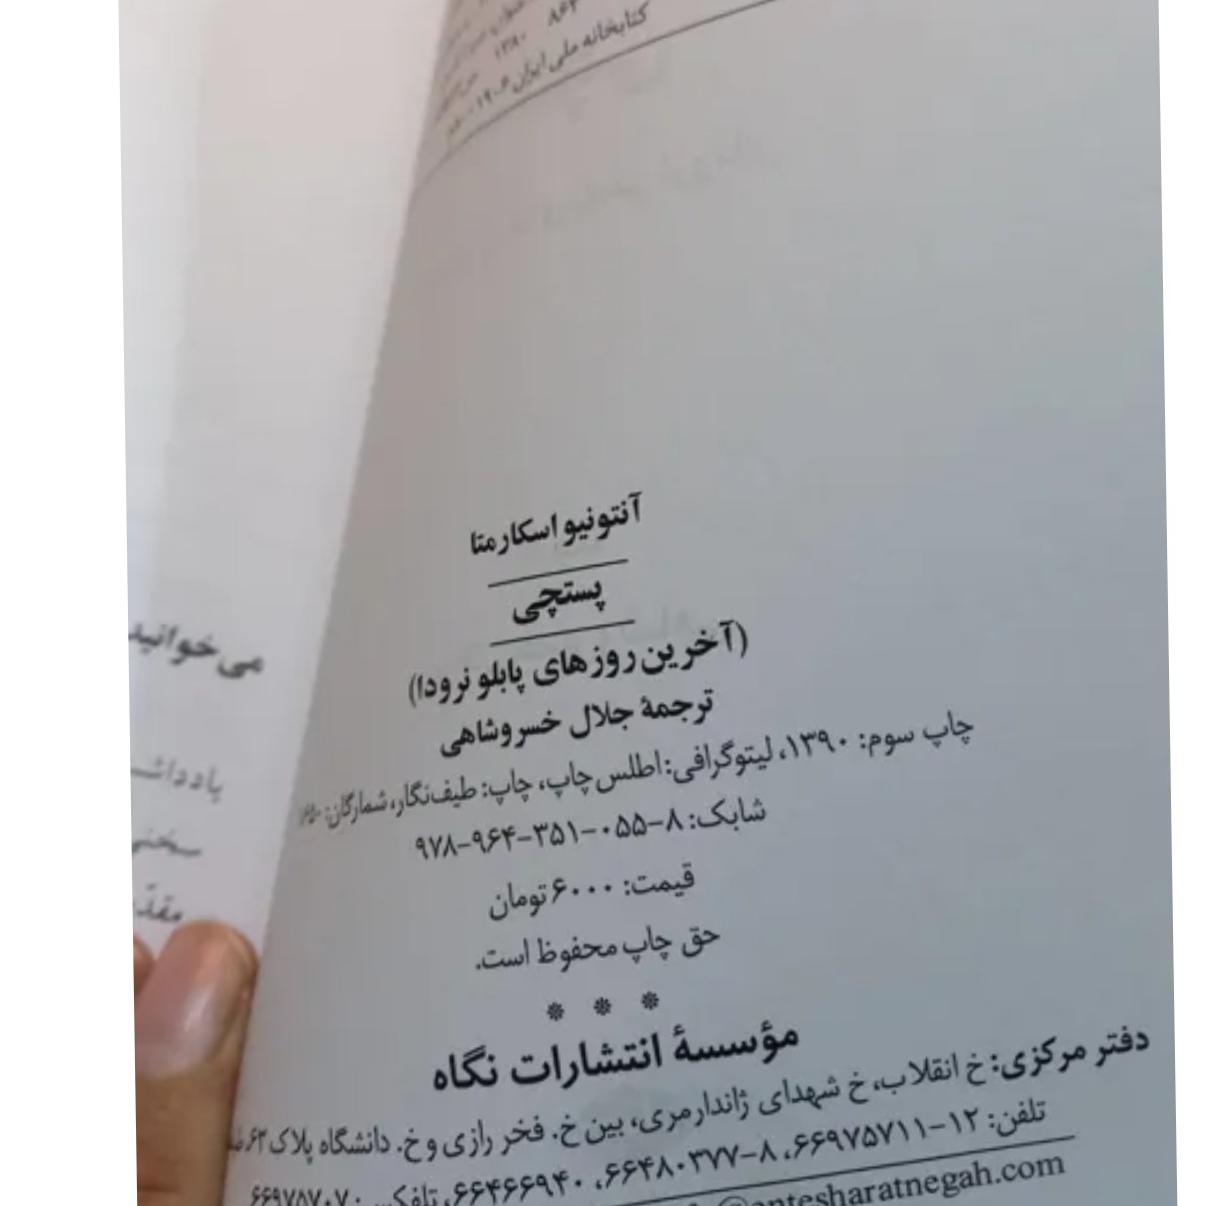 ۱۳۸۰
کتابخانه ملی ایران
آنتونیو اسکارمتا
پستچی
(آخرین روزهای پابلو نرودا)
ترجمهٔ جلال خسروشاهی
چاپ سوم: ۱۳۹۰، لیتوگرافی: اطلس‌چاپ، چاپ: طیف‌نگار، شمارگان:
شابک: ۸-۰۵۵-۳۵۱-۹۶۴-۹۷۸
قیمت: ۶۰۰۰ تومان
حق چاپ محفوظ است.
* * *
مؤسسهٔ انتشارات نگاه
دفتر مرکزی: خ انقلاب، خ شهدای ژاندارمری، بین خ. فخر رازی و خ. دانشگاه پلاک ۶۳
تلفن: ۱۲-۶۶۹۷۵۷۱۱، ۸-۶۶۴۸۰۳۷۷، ۶۶۴۶۶۹۴۰، تلفکس: ۶۶۹۷۵۷۰۷
@entesharatnegah.com
می‌خوانید